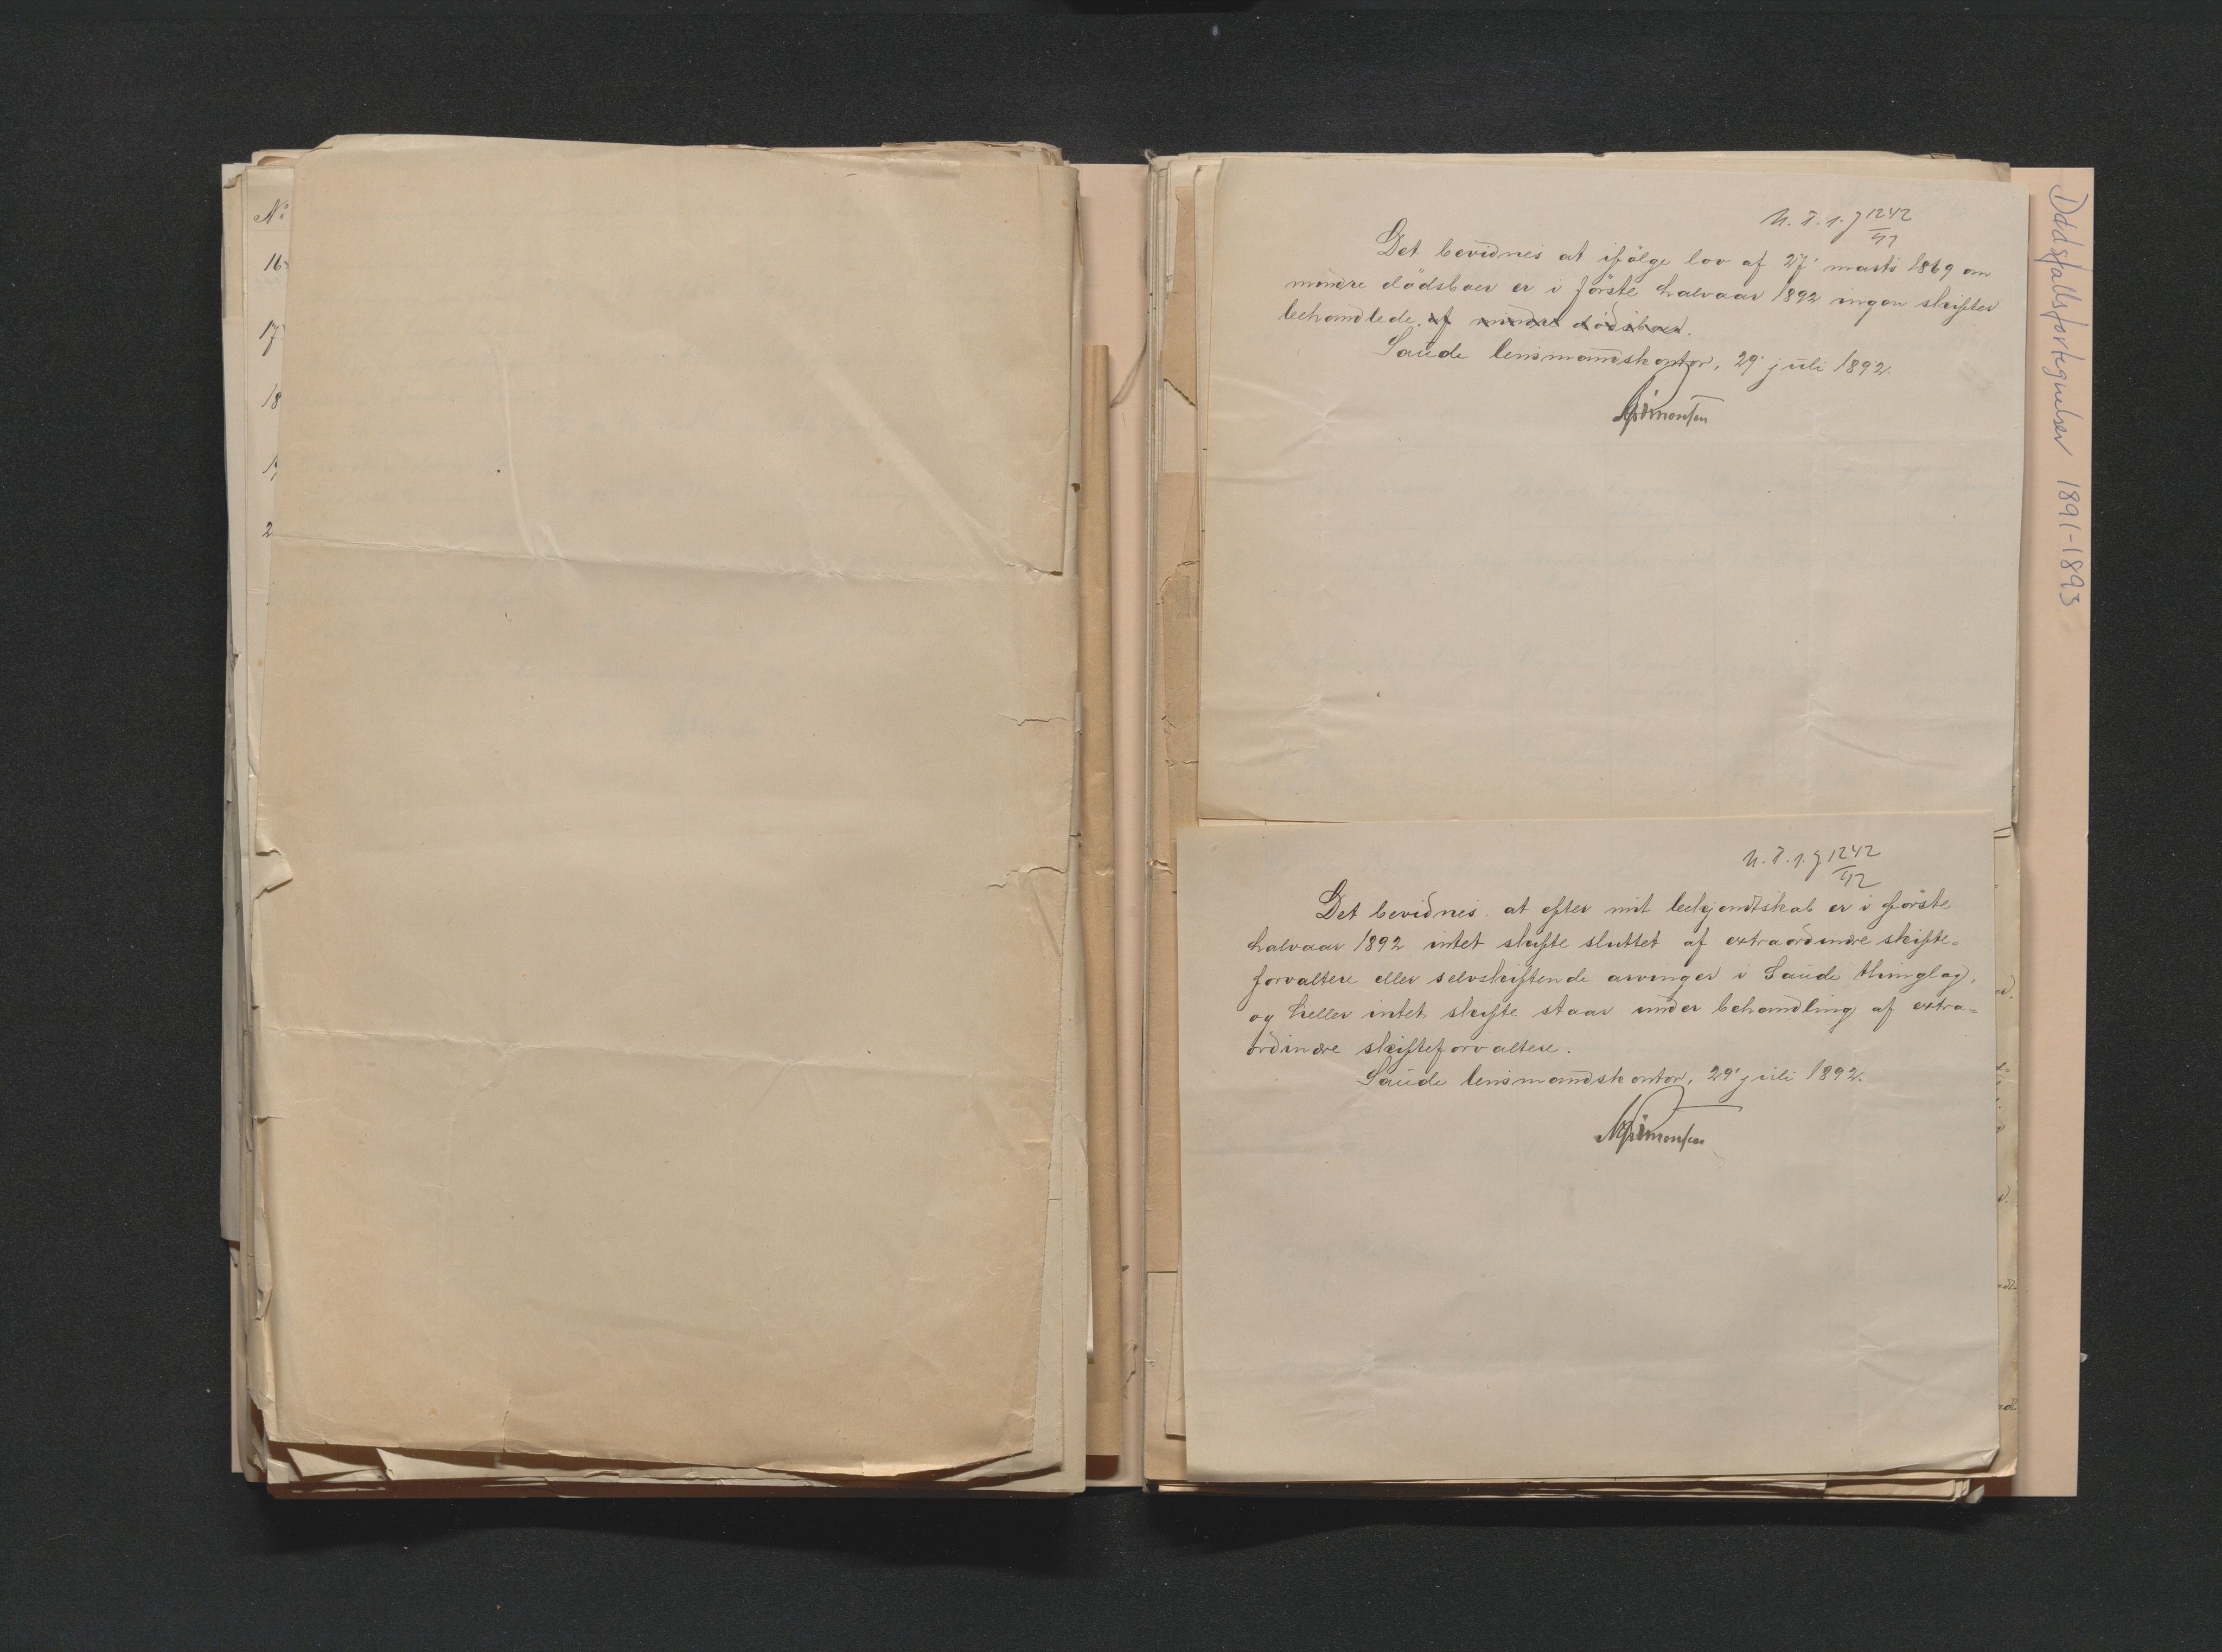 No
16
17
18
19
2
N. T. 1. J 1242/92
Det bevidnes at ifölge lov af 27' marts 1869 om
mindre dödsboer er i förste halvaar 1892 ingen skifter
behandlede. af mindre dödsboer.
Saude lensmandskontor, 29' juli 1892.
N. T. 1. J 1242/92
Det bevidnes at efter mit bekjendtskab er i förste
halvaar 1892 intet skifte sluttet af extraordinære skifte=
forvaltere eller selvskiftende arvinger i Saude thinglag,
og heller intet skifte staar under behandling af extra=
ordinære skifteforvaltere.
Saude lensmandskontor, 29' juli 1892.
Dødsfallsfortegnelser 1891-1893